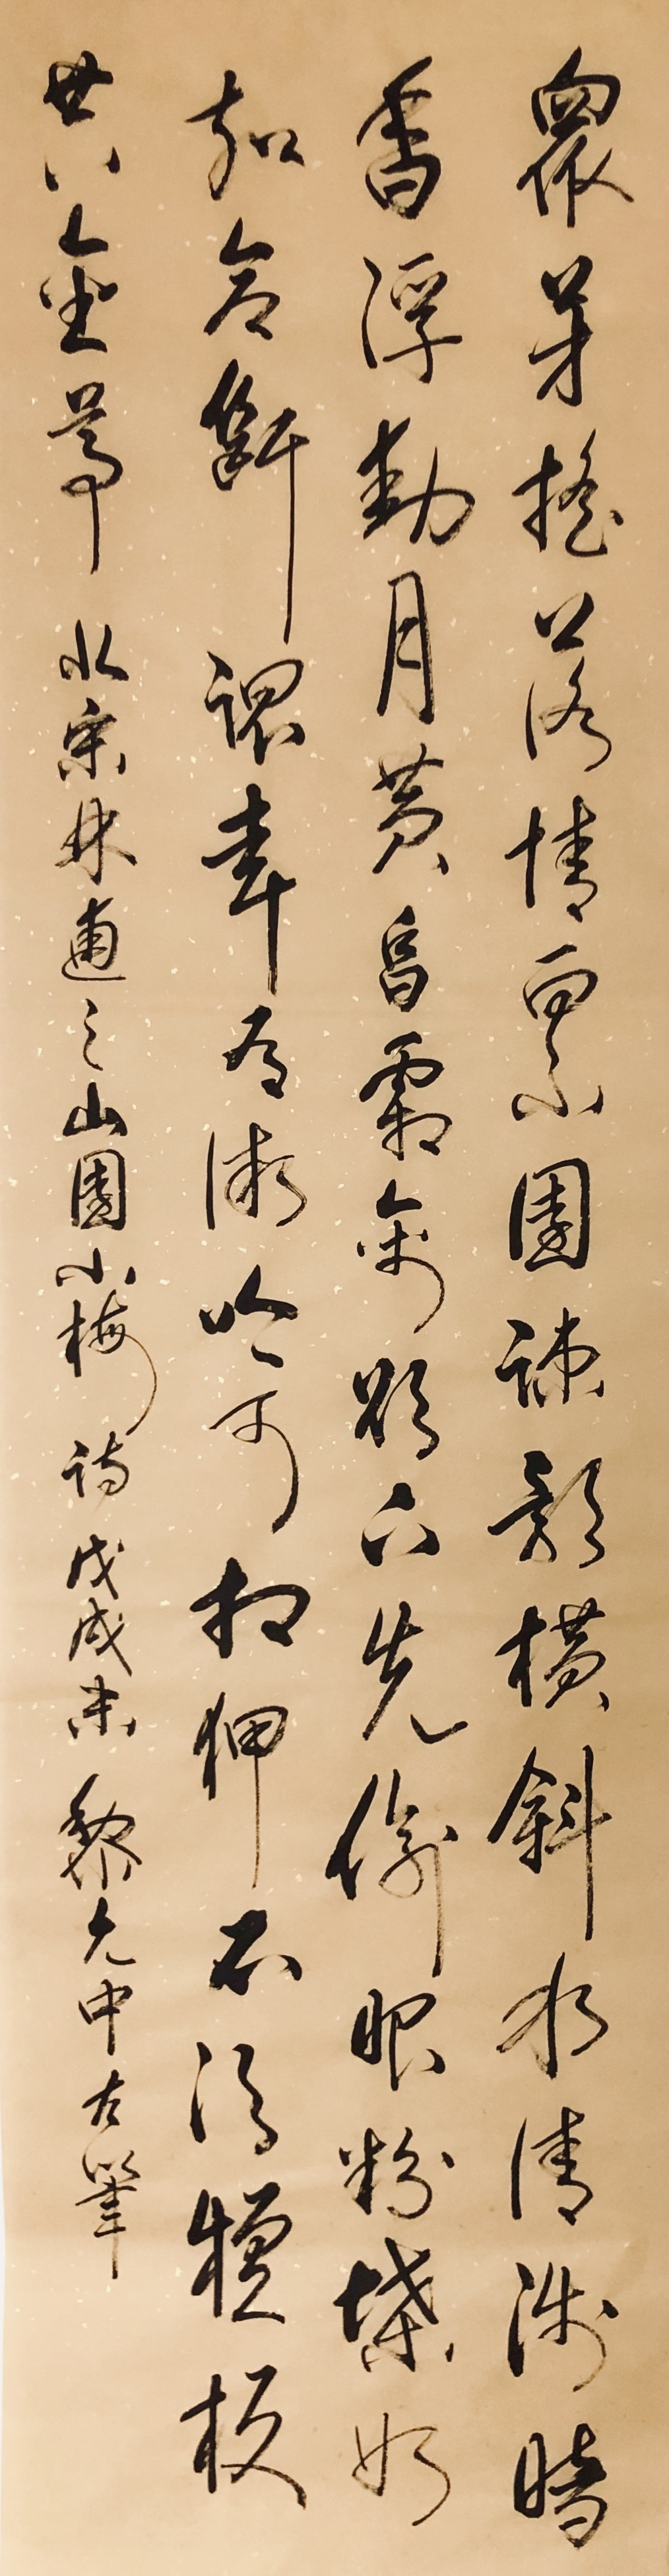 眾芳搖落情向小園疎影橫斜水清淺暗
香浮動月黃昏霜禽欲下先偷眼粉蝶如
知合斷魂幸有微吟可相狎不須檀板
共金尊 北宋林逋之山園小梅詩 戊戌末 黎允中 筆